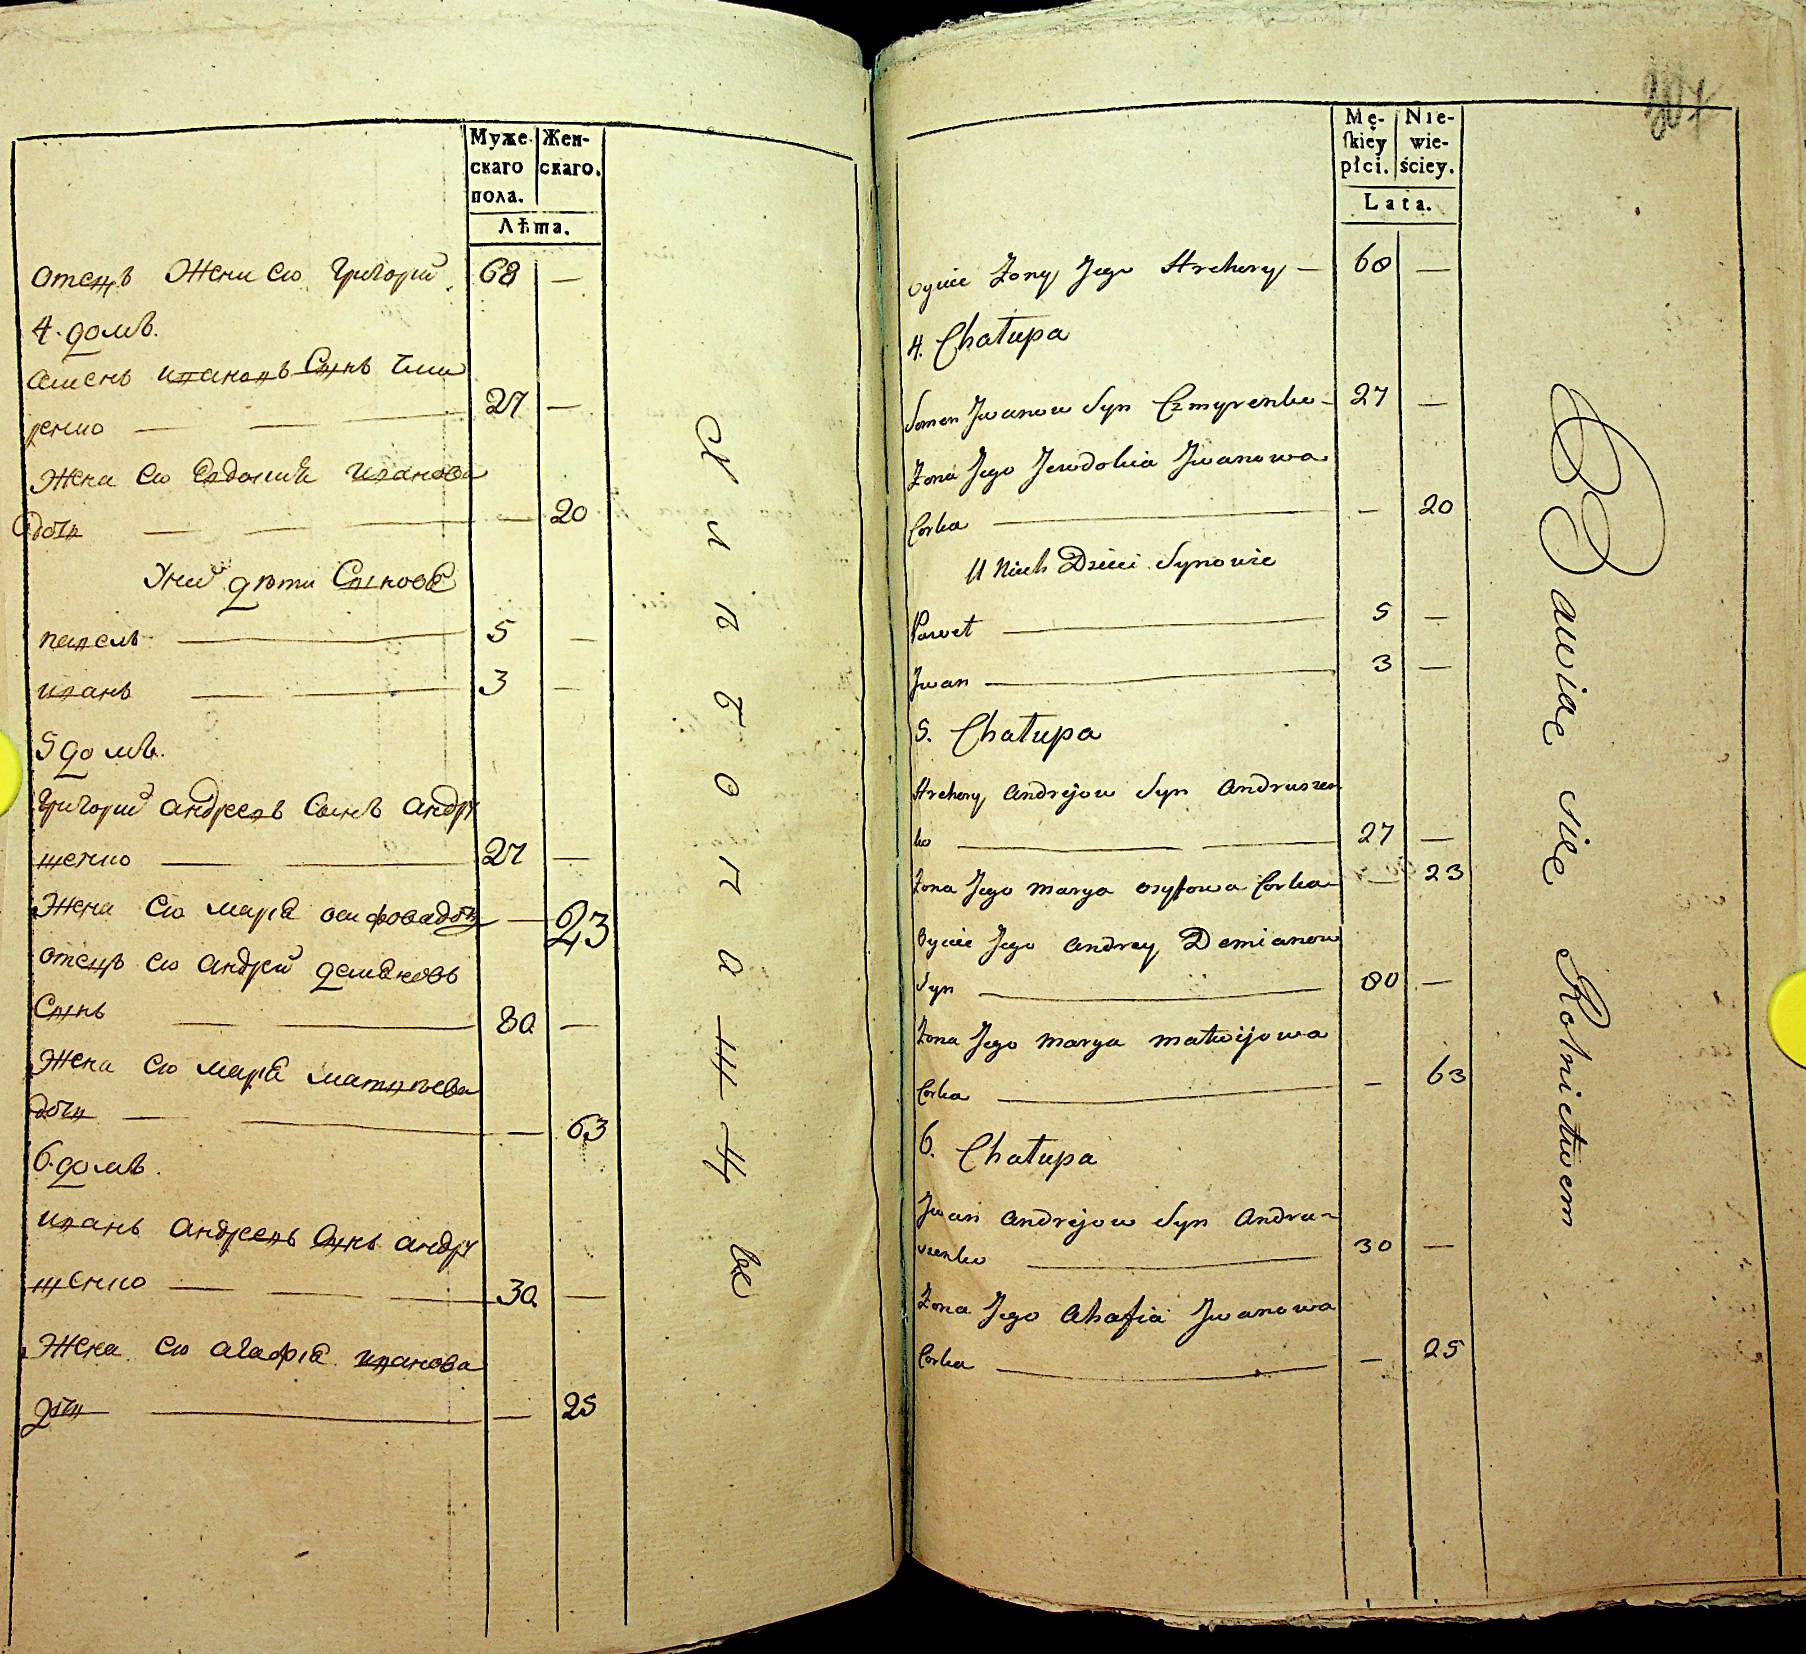 Муже- Жен-
скаго скаго.
пола.
Лѣта.
отецъ Жены его Григорий 68 —
4. домъ.
Семенъ ивановъ Сынъ Чми
ренко — 27 —
Жена его Евдокия иванова
дочь — 20
У них дѣти Сыновѣ
павелъ — 5 —
иванъ — 3 —
5 домъ.
Григорий андреевъ Сынъ андру
щенко — 27 —
Жена его марѣя осифова дочь — 23
отецъ его андрей демяновъ
Сынъ — 80 —
Жена его марѣя матвѣева
дочь — 63
6. домъ.
иванъ андреевъ Сынъ андру
щенко — 30 —
Жена его агафѣя иванова
дочь — 25
207
Mę- Nie-
skiey wie-
płci. ściey.
Lata.
Oyciec Żony Jego Hrehory — 68 —
4. Chałupa
Semen Jwanow Syn Czmyrenko — 27 —
Żona Jego Jewdokia Jwanowa
Corka — 20
U Nich Dzieci Synowie
Paweł — 5 —
Jwan — 3 —
5. Chałupa
Hrehory Andrejow Syn Andruszen
ko — 27 —
Żona Jego Marya Osyfowa Corka — 23
Oyciec Jego Andrey Demianow
Syn — 80 —
Żona Jego Marya Matwijowa
Corka — 63
6. Chałupa
Jwan Andrejow Syn Andru-
szenko — 30 —
Żona Jego Ahafia Jwanowa
Corka — 25
Bawiąc się Rolnictwem